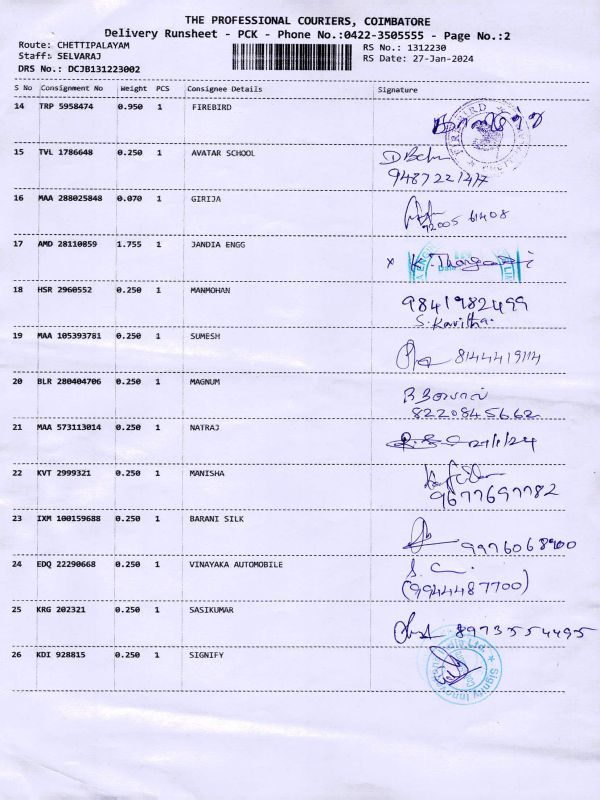 THE PROFESSIONAL COURIERS, COIMBATORE
Delivery Runsheet - PCK - Phone No.:0422-3505555 - Page No.:2
Route: CHETTIPALAYAM RS No.: 1312230
Staff: SELVARAJ RS Date: 27-Jan-2024
DRS No.: DCJB131223002
S No Consignment No Weight PCS Consignee Details Signature
14 TRP 5958474 0.950 1 FIREBIRD
FIREBIRD
15 TVL 1786648 0.250 1 AVATAR SCHOOL
16 MAA 288025848 0.070 1 GIRIJA
61408
17 AMD 28110859 1.755 1 JANDIA ENGG
18 HSR 2960552 0.250 1 MANMOHAN 9841982499
S. Kavitha.
19 MAA 105393781 0.250 1 SUMESH
20 BLR 280404706 0.250 1 MAGNUM
8220845662
21 MAA 573113014 0.250 1 NATRAJ
22 KVT 2999321 0.250 1 MANISHA
9677697782
23 IXM 100159688 0.250 1 BARANI SILK
9976068900
24 EDQ 22290668 0.250 1 VINAYAKA AUTOMOBILE
(9944487700)
25 KRG 202321 0.250 1 SASIKUMAR
8973554495
26 KDI 928815 0.250 1 SIGNIFY